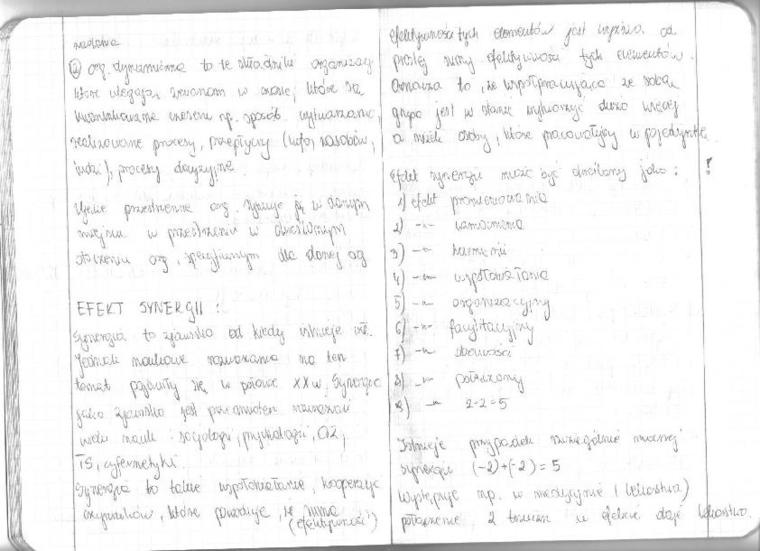 nadolna
② org. dynamiczna to te składniki organizacji
które ulegają zmianom w czasie, które są
np. sposób wytwarzania,
realizowane procesy, przepływy (info, zasobów,
ludzi), procesy decyzyjne
Ujęcie przestrzenne org. sytuuje ją w danym
miejscu w przestrzeni w określonym
otoczeniu org, specyficznym dla danej og
EFEKT SYNERGII :
Synergia to zjawisko od kiedy istnieje
Jednak naukowe rozważania na ten
temat pojawiły się w połowie XXw. Synergia
jako zjawisko jest przedmiotem rozważań
wielu nauk: socjologii, psychologii, OiZ,
TS, cybernetyki.
Synergia to takie współdziałanie, kooperacja
czynników, które powoduje, że suma
(efektywności)
efektywności tych elementów jest wyższa od
prostej sumy efektywności tych elementów.
Oznacza to, że współpracująca ze sobą
grupa jest w stanie wykonać dużo więcej
a niżeli osoby, które pracowałyby w pojedynkę
Efekt synergii może być określany jako : !
1) efekt promieniowania
2) -"- wzmocnienia
3) -"- harmonii
4) -"- współdziałania
5) -"- organizacyjny
6) -"- facylitacyjny
7) -"- obecności
8) -"-
9) -"- 2+2=5
Istnieje przypadek szczególnie mocnej
synergii (-2)+(-2)=5
Występuje np. w medycynie (lekarstwa)
połączenie 2 trucizn w efekcie daje lekarstwo.